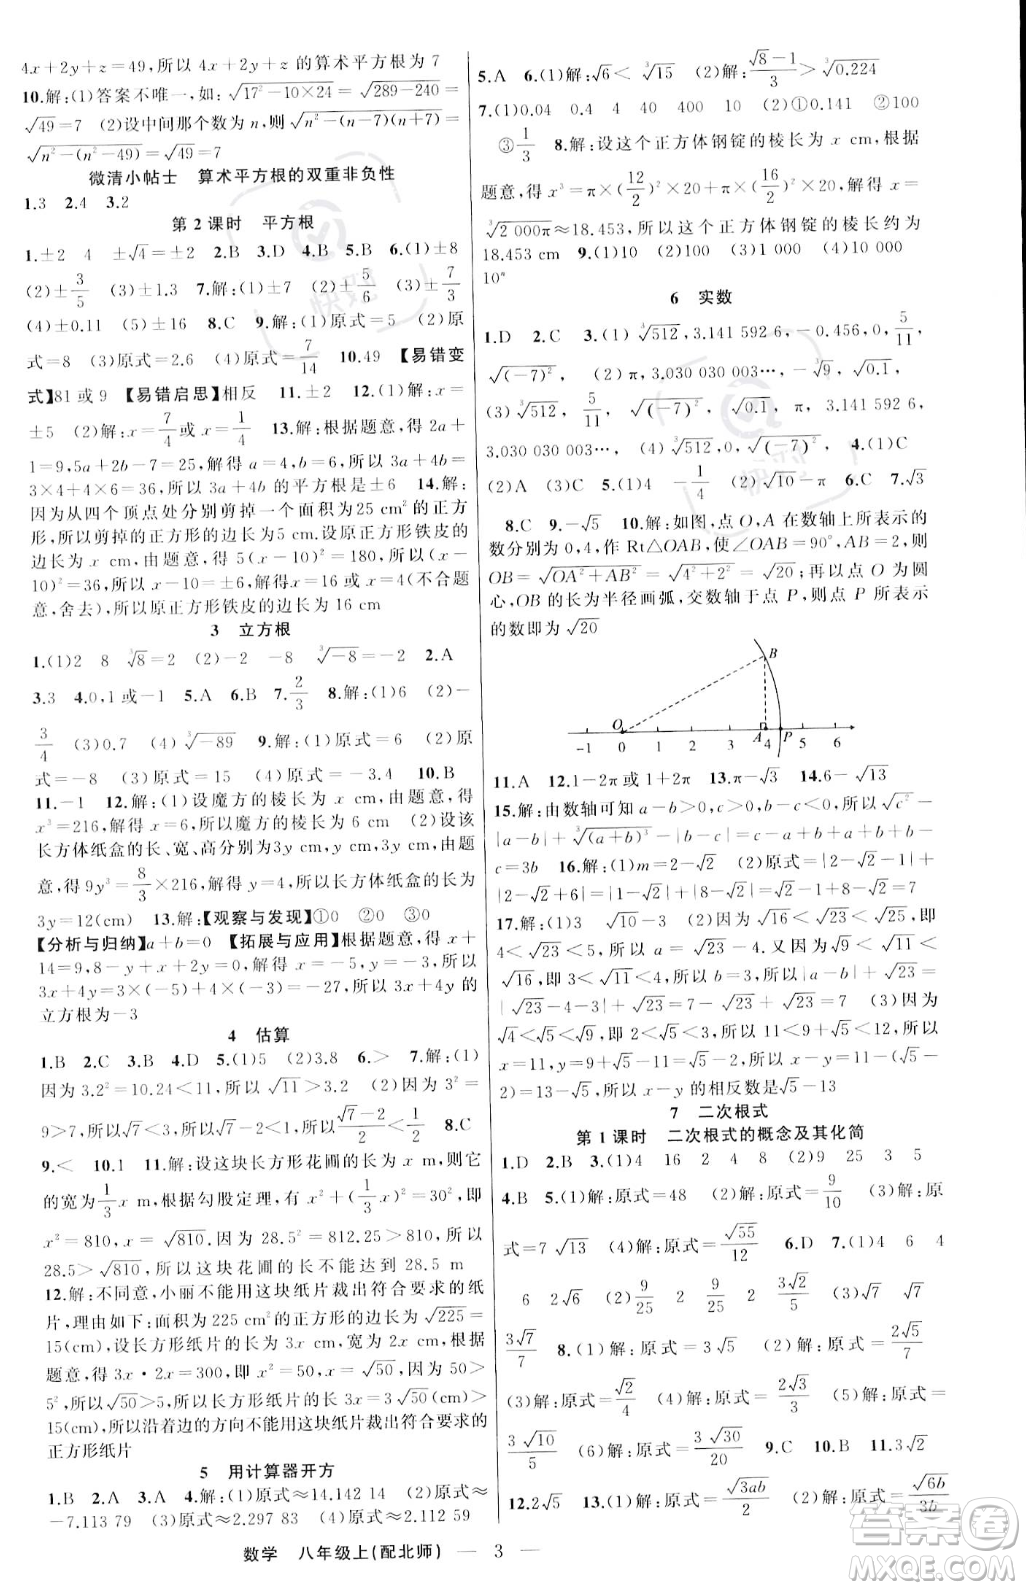 4x+2y+z=49,所以 4x+2y+z 的算术平方根为 7
10.解:(1)答案不唯一,如:√(17²-10×24)=√(289-240)=
√49=7 (2)设中间那个数为 n,则√(n²-(n-7)(n+7))=
√(n²-(n²-49))=√49=7
微清小帖士 算术平方根的双重非负性
1.3 2.4 3.2
第 2 课时 平方根
1.±2 4 ±√4=±2 2.B 3.D 4.B 5.B 6.(1)±8
(2)±3/5 (3)±13 7.解:(1)±11 (2)±5/6 (3)±7/3
(4)±0.11 (5)±16 8.C 9.解:(1)原式=5 (2)原
式=8 (3)原式=2.6 (4)原式=7/14 10.49 【易错变
式】81 或 9 【易错启思】相反 11.±2 12.(1)解:x=
±5 (2)解:x=7/4或 x=1/4 13.解:根据题意,得 2a+
1=9,5a+2b-7=25,解得 a=4,b=6,所以 3a+4b=
3×4+4×6=36,所以 3a+4b 的平方根是±6 14.解:
因为从四个顶点处分别剪掉一个面积为 25 cm² 的正方
形,所以剪掉的正方形的边长为5 cm.设原正方形铁皮的
边长为 x cm,由题意,得 5(x-10)²=180,所以(x-
10)²=36,所以 x-10=±6,解得 x=16 或 x=4(不合题
意,舍去),所以原正方形铁皮的边长为 16 cm
3 立方根
1.(1)2 8 ³√8=2 (2)-2 -8 ³√-8=-2 2.A
3.3 4.0,1 或-1 5.A 6.B 7.2/3 8.解:(1)6 (2)-
3/4 (3)0.7 (4)³√-89 9.解:(1)原式=6 (2)原
式=-8 (3)原式=15 (4)原式=-3.4 10.B
11.-1 12.解:(1)设魔方的棱长为 x cm,根据题意,得
x³=216,解得 x=6,所以魔方的棱长为 6 cm (2)设该
长方体纸盒的长、宽、高分别为3y cm,3y cm,y cm,由题
意,得 9y³=8/3×216,解得 y=4,所以长方体纸盒的长为
3y=12(cm) 13.解:【观察与发现】①0 ②0 ③0
【分析与归纳】a+b=0 【拓展与应用】根据题意,得 x+
14=9,8-y+x+y+z=0,解得 x=-5,z=-3,所以
3x+4z=3×(-5)+4×(-3)=-27,所以 3x+4z 的
立方根为-3
4 估算
1.B 2.C 3.B 4.D 5.(1)5 (2)3.8 6.> 7.解:(1)
因为 3.2²=10.24<11,所以 √11>3.2 (2)因为 3²=
9>7,所以√7<3,所以√7-2<1,所以(√7-2)/2<1/2 8.C
9.< 10.1 11.解:设这块长方形花圃的长为 x m,则它
的宽为1/3x m,根据勾股定理,有 x²+(1/3x)²=30²,所以
x²=810,所以 x=√810,因为 28.5²=812.25>810,所以
28.5>√810,所以这块花圃的长不能达到 28.5 m
12.解:不同意,小丽不能用这块纸片裁出符合要求的纸
片,理由如下:因为面积为 225 cm² 的正方形的边长为√225=
15(cm),设长方形纸片的长为 3x cm,宽为 2x cm,根据
题意,得 3x·2x=300,即 x²=50,所以 x=√50,因为 50>
5²,所以√50>5,所以长方形纸片的长 3x=3√50(cm)>
15(cm),所以沿着边的方向不能用这块纸片裁出符合要求的
正方形纸片
5 用计算器开方
1.B 2.A 3.A 4.解:(1)原式≈14.142 14 (2)原式≈
-7.113 79 (3)原式≈2.297 83 (4)原式≈2.112 59
5.A 6.(1)解:√6<³√15 (2)解:(√8-1)/3>³√0.224
7.(1)0.04 0.4 4 40 400 10 (2)①0.141 ②100
③1/3 8.解:设这个正方体钢锭的棱长为 x cm,根据
题意,得 x³=π×(12/2)²×20+π×(16/2)²×20,所以 x=
³√2 000π≈18.453,所以这个正方体钢锭的棱长约为
18.453 cm 9.(1)10 (2)100 (3)1 000 (4)10 000
10ⁿ
6 实数
1.D 2.C 3.(1)³√512,3.141 592 6,-0.456,0,5/11,
√(-7)², (2)π,3.030 030 003…,-³√9,√0.1,
(3)³√512,5/11,√(-7)²,√0.1,π,3.141 592 6,
3.030 030 003…, (4)³√512,0,√(-7)² 4.(1)C
(2)A (3)C 5.(1)√8 (2)-1/4 (3)√10-4 6.C 7.√3
8.C 9.-√5 10.解:如图,点 O,A 在数轴上所表示的
数分别为 0,4,作 Rt△OAB,使∠OAB=90°,AB=2,则
OB=√(OA²+AB²)=√(4²+2²)=√20;再以点 O 为圆
心,OB 的长为半径画弧,交数轴于点 P,则点 P 所表示
的数即为√20
B
O A P
-1 0 1 2 3 4 5 6
11.A 12.1-2π或 1+2π 13.π-√3 14.6-√13
15.解:由数轴可知 a-b>0,c>0,b-c<0,所以√c²-
|a-b|+³√(a+b)³-|b-c|=c-a+b+a+b+b-
c=3b 16.解:(1)m=2-√2 (2)原式=|2-√2-
1|+|2-√2+6|=|1-√2|+|8-√2|=√2-1+8-√2=7
17.解:(1)3 √10-3 (2)因为√16<√17<√25,即
4<√17<5,所以 a=√23-4.又因为√9<√11<
√16,即 3<√11<4,所以 b=3,所以|a-b|+√23=
|√23-4-3|+√23=7-√23+√23=7 (3)因为
√4<√5<√9,即 2<√5<3,所以 x=11+2=13,y=√5-
2,所以 x-y=13-(√5-
2)=13-√5+2=15-√5,所以 x-y的相反数是√5-13
7 二次根式
第 1 课时 二次根式的概念及其化简
1.D 2.B 3.(1)4 16 2 4 8 (2)9 25 3 5
4.B 5.(1)解:原式=48 (2)解:原式=9/10 (3)解:原
式=7√13 (4)解:原式=√55/12 6.D 7.(1)4 6 4
6 2√6 (2)9/25 9/25 3√2/5 (3)解:原式=2√5/7
3√7/7 8.(1)解:原式=3√5 (2)解:原式=2√5/7
(3)解:原式=√2/4 (4)解:原式=2√3/3 (5)解:原式=
3√10/5 (6)解:原式=3√30/4 9.C 10.B 11.3√2
12.2√5 13.(1)解:原式=√3ab/2 (2)解:原式=√6b/3b
数学 八年级上(配北师) — 3 —
答案圈